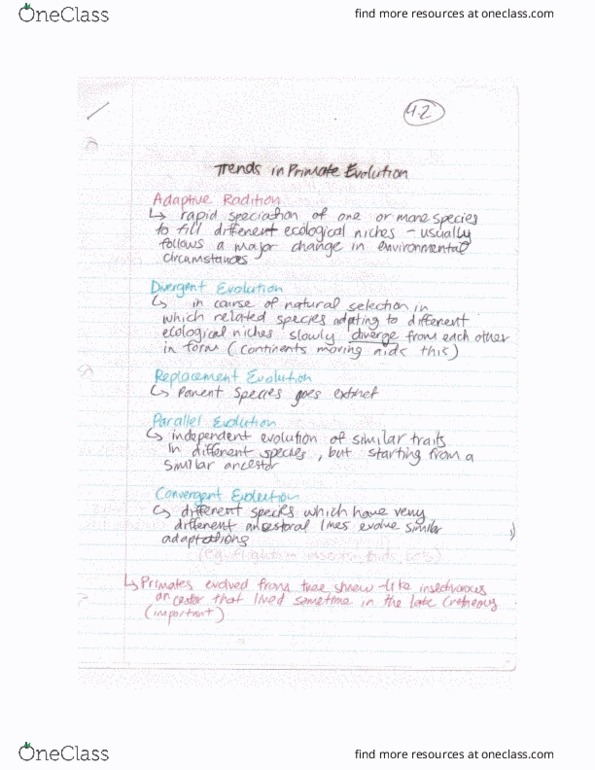 OneClass
find more resources at oneclass.com
4.2
Trends in Primate Evolution
Adaptive Radition
↳ rapid speciation of one or more species
to fill different ecological niches - usually
follows a major change in environmental
circumstances
Divergent Evolution
↳ in cause of natural selection in
which related species adpting to different
ecological niches slowly diverge from each other
in form (continents moving aids this)
Replacement Evolution
↳ Parent Species goes extinct
Parallel Evolution
↳ independent evolution of similar traits
in different species, but starting from a
similar ancestor
Convergent Evolution
↳ different species which have very
different ancestoral lines evolve similar
adaptations
(eg. flight in
↳ Primates evolved from tree shrew-like insectivorous
ancestor that lived sometime in the late
(important)
OneClass
find more resources at oneclass.com